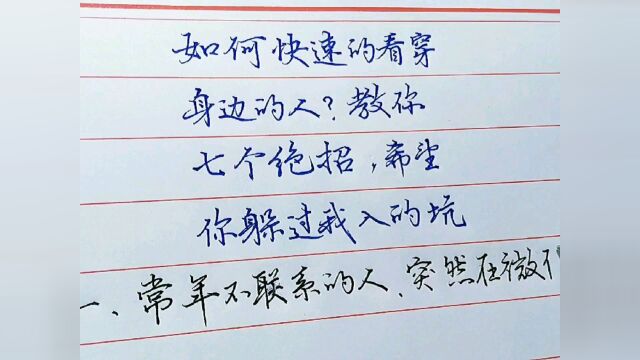 如何快速的看穿
身边的人？教你
七个绝招，希望
你躲过我入的坑
一、常年不联系的人、突然在微